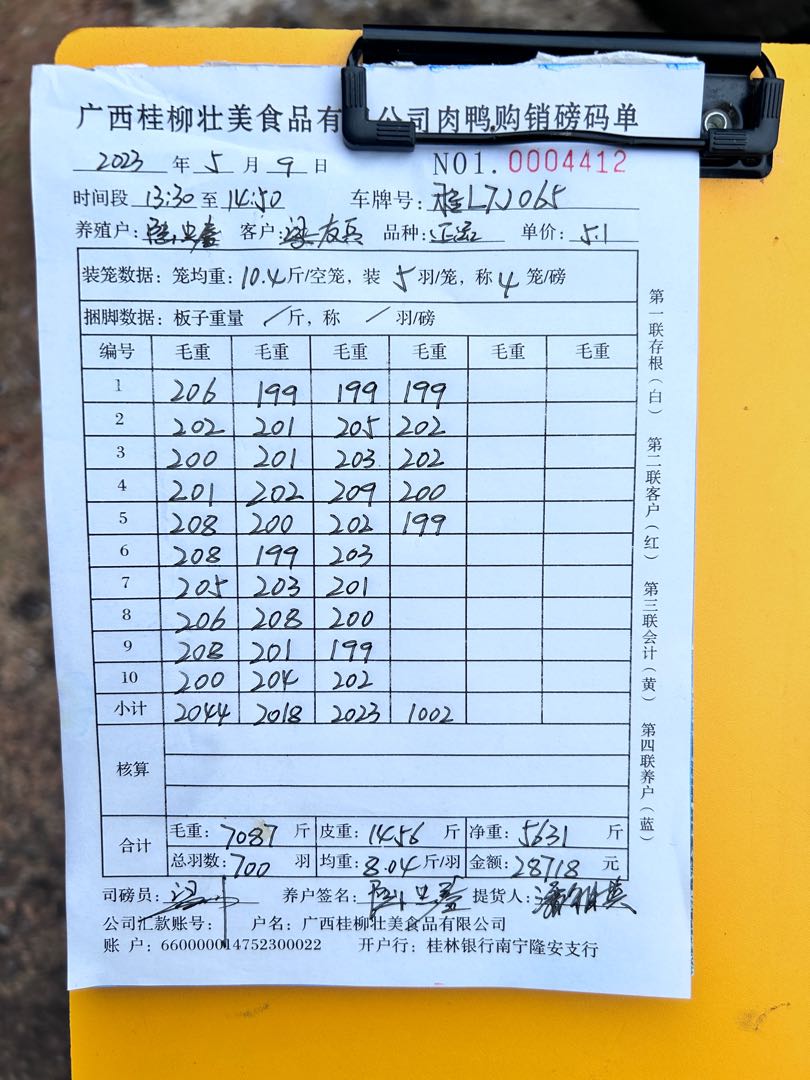 广西桂柳壮美食品有 公司肉鸭购销磅码单
2023 年 5 月 9 日 NO1. 0004412
时间段 13:30 至 14:50 车牌号: 桂L7J065
养殖户: 客户: 梁友兵 品种: 单价: 5.1
装笼数据: 笼均重: 10.4 斤/空笼, 装 5 羽/笼, 称 4 笼/磅
捆脚数据: 板子重量 / 斤, 称 / 羽/磅
编号 毛重 毛重 毛重 毛重 毛重 毛重
1 206 199 199 199
2 202 201 205 202
3 200 201 203 202
4 201 202 209 200
5 208 200 202 199
6 208 199 203
7 205 203 201
8 206 208 200
9 208 201 199
10 200 204 202
小计 2044 2018 2023 1002
核算
合计 毛重: 7087 斤 皮重: 1456 斤 净重: 5631 斤
总羽数: 700 羽 均重: 8.04 斤/羽 金额: 28718 元
司磅员: 养户签名: 提货人:
公司汇款账号: 户名: 广西桂柳壮美食品有限公司
账 户: 660000014752300022 开户行: 桂林银行南宁隆安支行
第一联存根(白) 第二联客户(红) 第三联会计(黄) 第四联养户(蓝)